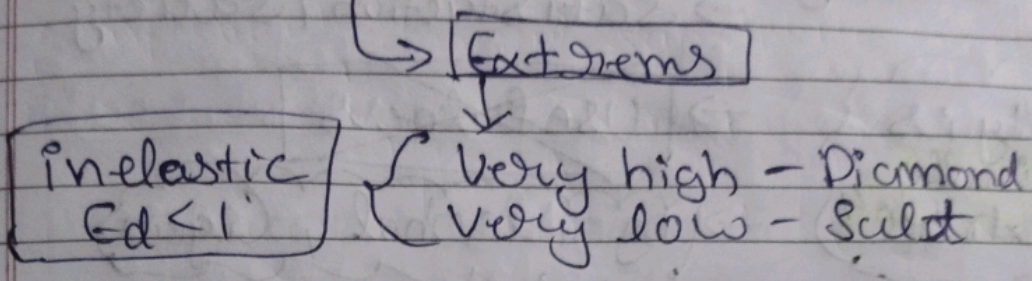 Extrems
inelastic
Ed < 1
Very high - Diamond
Very low - Salt